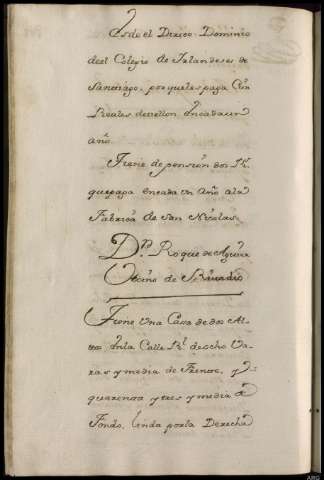 Es de el Direco Dominio
deel Colegio de Irlandeses de
Santiago, porqueles paga Cien
Reales devellon encada un
año.
Tiene de pensión dos Rs
que paga encada un Año ala
Fabrica de San Nicolas.
Dn. Roque de Aguiar
Vecino de Rivadio
Tiene Una Casa de dos Al-
tos enla Calle Rl. de ocho Va-
ras y media de Frente, y
quarenta y tres y media de
Fondo. Linda porla Derecha
ARG